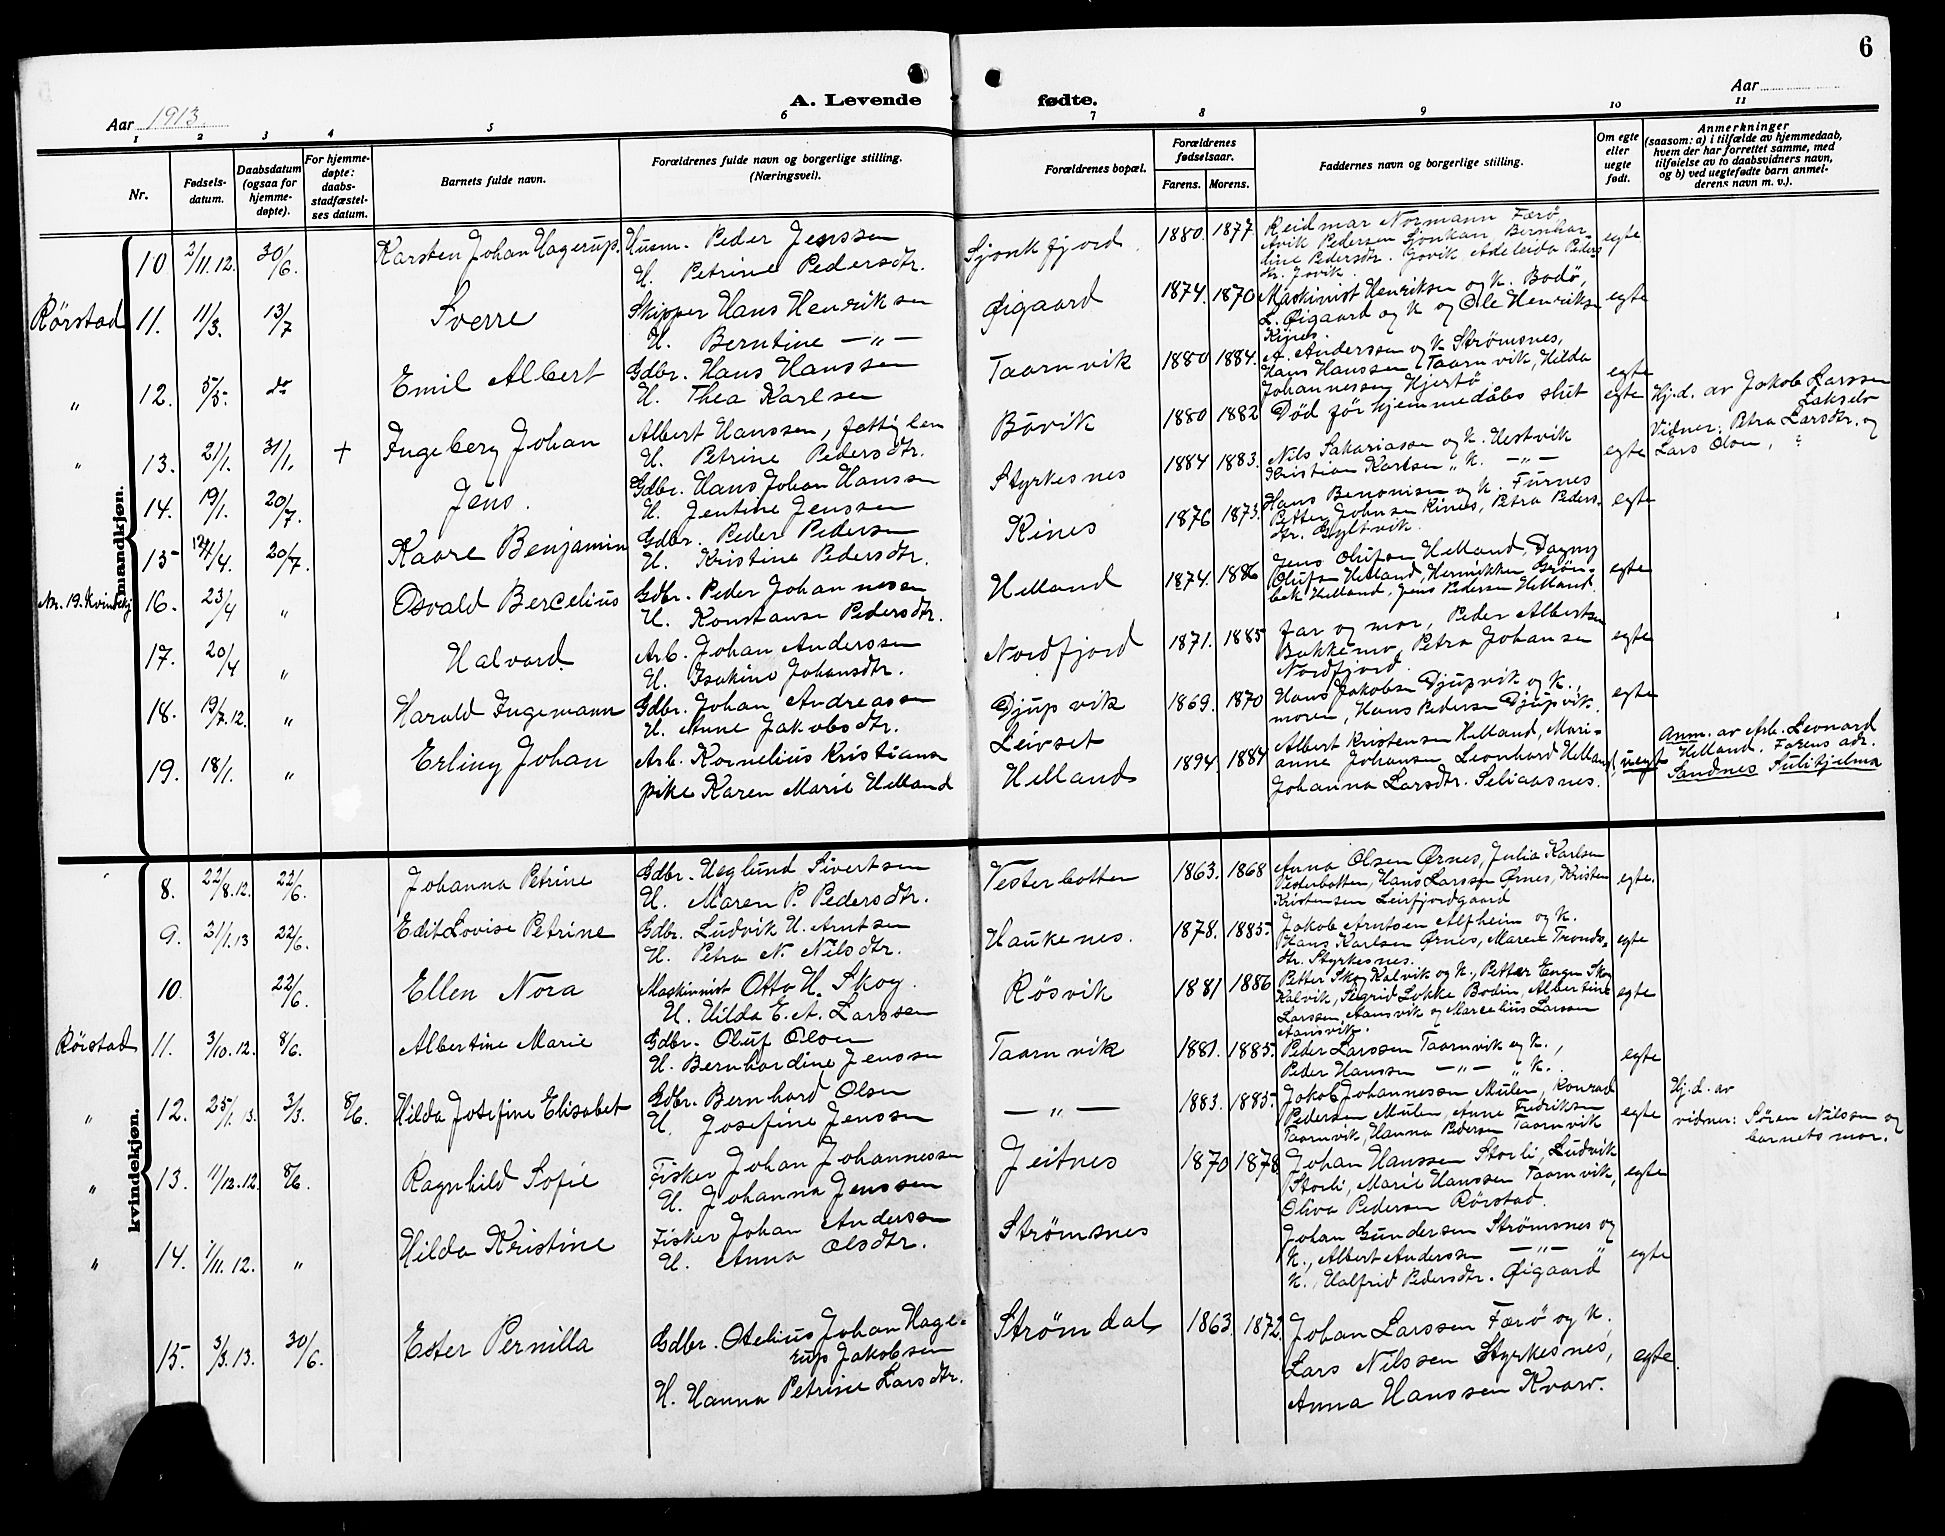 6
A. Levende fødte.
Aar 1913
Aar
1 2 3 4 5 6 7 8 9 10 11
Nr.
Fødselsdatum.
Daabsdatum (ogsaa for hjemmedøpte).
For hjemmedøpte: daabsstadfæstelses datum.
Barnets fulde navn.
Forældrenes fulde navn og borgerlige stilling. (Næringsvei).
Forældrenes bopæl.
Forældrenes fødselsaar.
Farens. Morens.
Faddernes navn og borgerlige stilling.
Om egte eller uegte født.
Anmerkninger (saasom: a) i tilfælde av hjemmedaab, hvem der har forrettet samme, med tilføielse av to daabsvidners navn, og b) ved uegtefødte barn anmelderens navn m. v.).
mandkjøn.
10 2/11.12. 30/6. Karsten Johan Hagerup. Husm. Peder Jenssen
H. Petrine Pedersdtr.
Sjonkfjord. 1880. 1877 Reidmar Normann Færö,
Avik Pedersen Sjonkan, Bernhar
dine Pedersdtr. Gjovik, Adeleida Peders
dtr. Jovik. egte
Rörstad 11. 11/3. 13/7 Sverre Skipper Hans Henriksen
H. Berntine —"—
Øigaard 1874. 1870 Maskinist Henriksen og K. Bodö,
L. Øigaard og K og Ole Henriksen
Kines. egte
" 12. 5/5. do Emil Albert Gdbr. Hans Hanssen
H. Thea Karlsen
Taarnvik 1880 1884. A. Anderssen og K Strömsnes,
Hans Hanssen Taarnvik, Hilda
Johannessen Hjertö egte
" 13. 21/1. 31/1. + Ingeberg Johan Albert Hanssen, fattiglem
H. Petrine Pedersdtr.
Bövik 1880 1882 Död för hjemmedåbs slut egte
Hj.d. av Jakob Larssen
Lakselv
Vidner: Petra Larsdtr. og
Lars Olsen, "
14. 19/1. 20/7. Jens. Gdbr. Hans Johan Hanssen
H. Jentine Jenssen
Styrkesnes 1884 1883. Nils Sakariassen og K. Hestvik
Kristian Karlsen " K. —"— egte
15 4/4. 20/7. Kaare Benjamin Gdbr. Peder Pedersen
H. Kristine Pedersdtr.
Kines 1876 1873. Hans Benonisen og K. Furnes
Petter Johnsen Kines, Petra Peders-
dtr. Gyltvik. egte
Nr. 19. Kvindekj. 16. 23/4 " Osvald Bercelius Gdbr. Peder Johannesen
H. Konstanse Pedersdtr.
Helland 1874. 1886 Jens Olufsen Helland, Dagny
Olufsen Helland, Henrikken Grön-
bek Helland, Jens Pedersen Helland. egte
17. 20/4 " Halvard. Arb. Johan Anderssen
H. Isakine Johansdtr.
Nordfjord 1871. 1885 Far og mor, Peder Albertsen
Bakkemo, Petra Johansen
Nordfjord. egte
18. 19/7.12. " Harald Ingemann Gdbr. Johan Andreassen
H. Anne Jakobsdtr.
Djupvik 1869. 1870 Hans Jakobsen Djupvik og K.,
moren, Hans Pedersen Djupvik. egte
19. 18/1. " Erling Johan Arb. Kornelius Kristians
pike Karen Marie Helland
Leivset
Helland 1894 1884 Albert Kristensen Helland, Mari-
anne Johansen, Leonhard Helland,
Johanna Larsdtr. Seliaasnes. uegt
Anm. av Arb. Leonard
Helland. Farens adr.
Sandnes Sulitjelma
kvindekjøn.
8. 22/8.12. 22/6. Johanna Petrine Gdbr. Heglund Sivertsen
H. Maren P. Pedersdtr.
Vesterbotten 1863. 1868 Anna Olsen Ørnes, Julia Karlsen
Vesterbotten, Hans Larssen Ørnes, Kristen
Kristensen Leirfjordgaard egte.
9. 21/1.13 22/6. Edit Lovise Petrine Gdbr. Ludvik H. Arntsen
H. Petra N. Nilsdtr.
Haukenes. 1878. 1885. Jakob Arntsen Alfheim og K.
Hans Karlsen Ørnes, Maren Tronds-
dtr. Styrkesnes. egte
10 22/6. Ellen Nora Maskinist Otto H. Skog.
H. Hilda E. A. Larssen
Rösvik 1881 1886 Petter Skog Kalvik og K., Petter Engen Skog
Kalvik, Sigrid Løkke Bodin, Albertine
Larssen, Aansvik og Marcelius Larssen
Aansvik. egte
Rörstad 11. 3/10.12. 8/6. Albertine Marie Gdbr. Oluf Olsen
H. Bernhardine Jenssen
Taarnvik 1881. 1885. Peder Larssen Taarnvik og K.,
Peder Hanssen —"— " K. egte
" 12. 25/1.13. 3/3. 8/6. Hilda Josefine Elisabet Gdbr. Bernhard Olsen
H. Josefine Jenssen
—"— 1883. 1885. Jakob Johannessen Mulen, Konrad
Pedersen Mulen, Anne Fredriksen
Taarnvik, Hanna Pedersen Taarnvik egte
Hj.d. av
vidner: Søren Nilssen og
barnets mor.
" 13. 11/12.12. 8/6. Ragnhild Sofie Fisker Johan Johannessen
H. Johanna Jenssen
Jeitnes 1870 1878 Johan Hanssen Storli, Ludvik
Storli, Marie Hanssen Taarnvik,
Oliva Pedersen Rörstad. egte
" 14. 1/11.12. " Hilda Kristine Fisker Johan Anderssen
H. Anna Olsdtr.
Strømsnes Johan Gundersen Strømsnes og
K., Albert Anderssen —"— "
K., Halfrid Pedersdtr. Øigaard egte
15. 3/3.13. 30/6. Ester Pernilla Gdbr. Otelius Johan Hage-
rup Jakobsen
H. Hanna Petrine Larsdtr.
Strømdal 1863 1872. Johan Larssen Færö og K.
Lars Nilssen Styrkesnes,
Anna Hanssen Kvarv. egte.